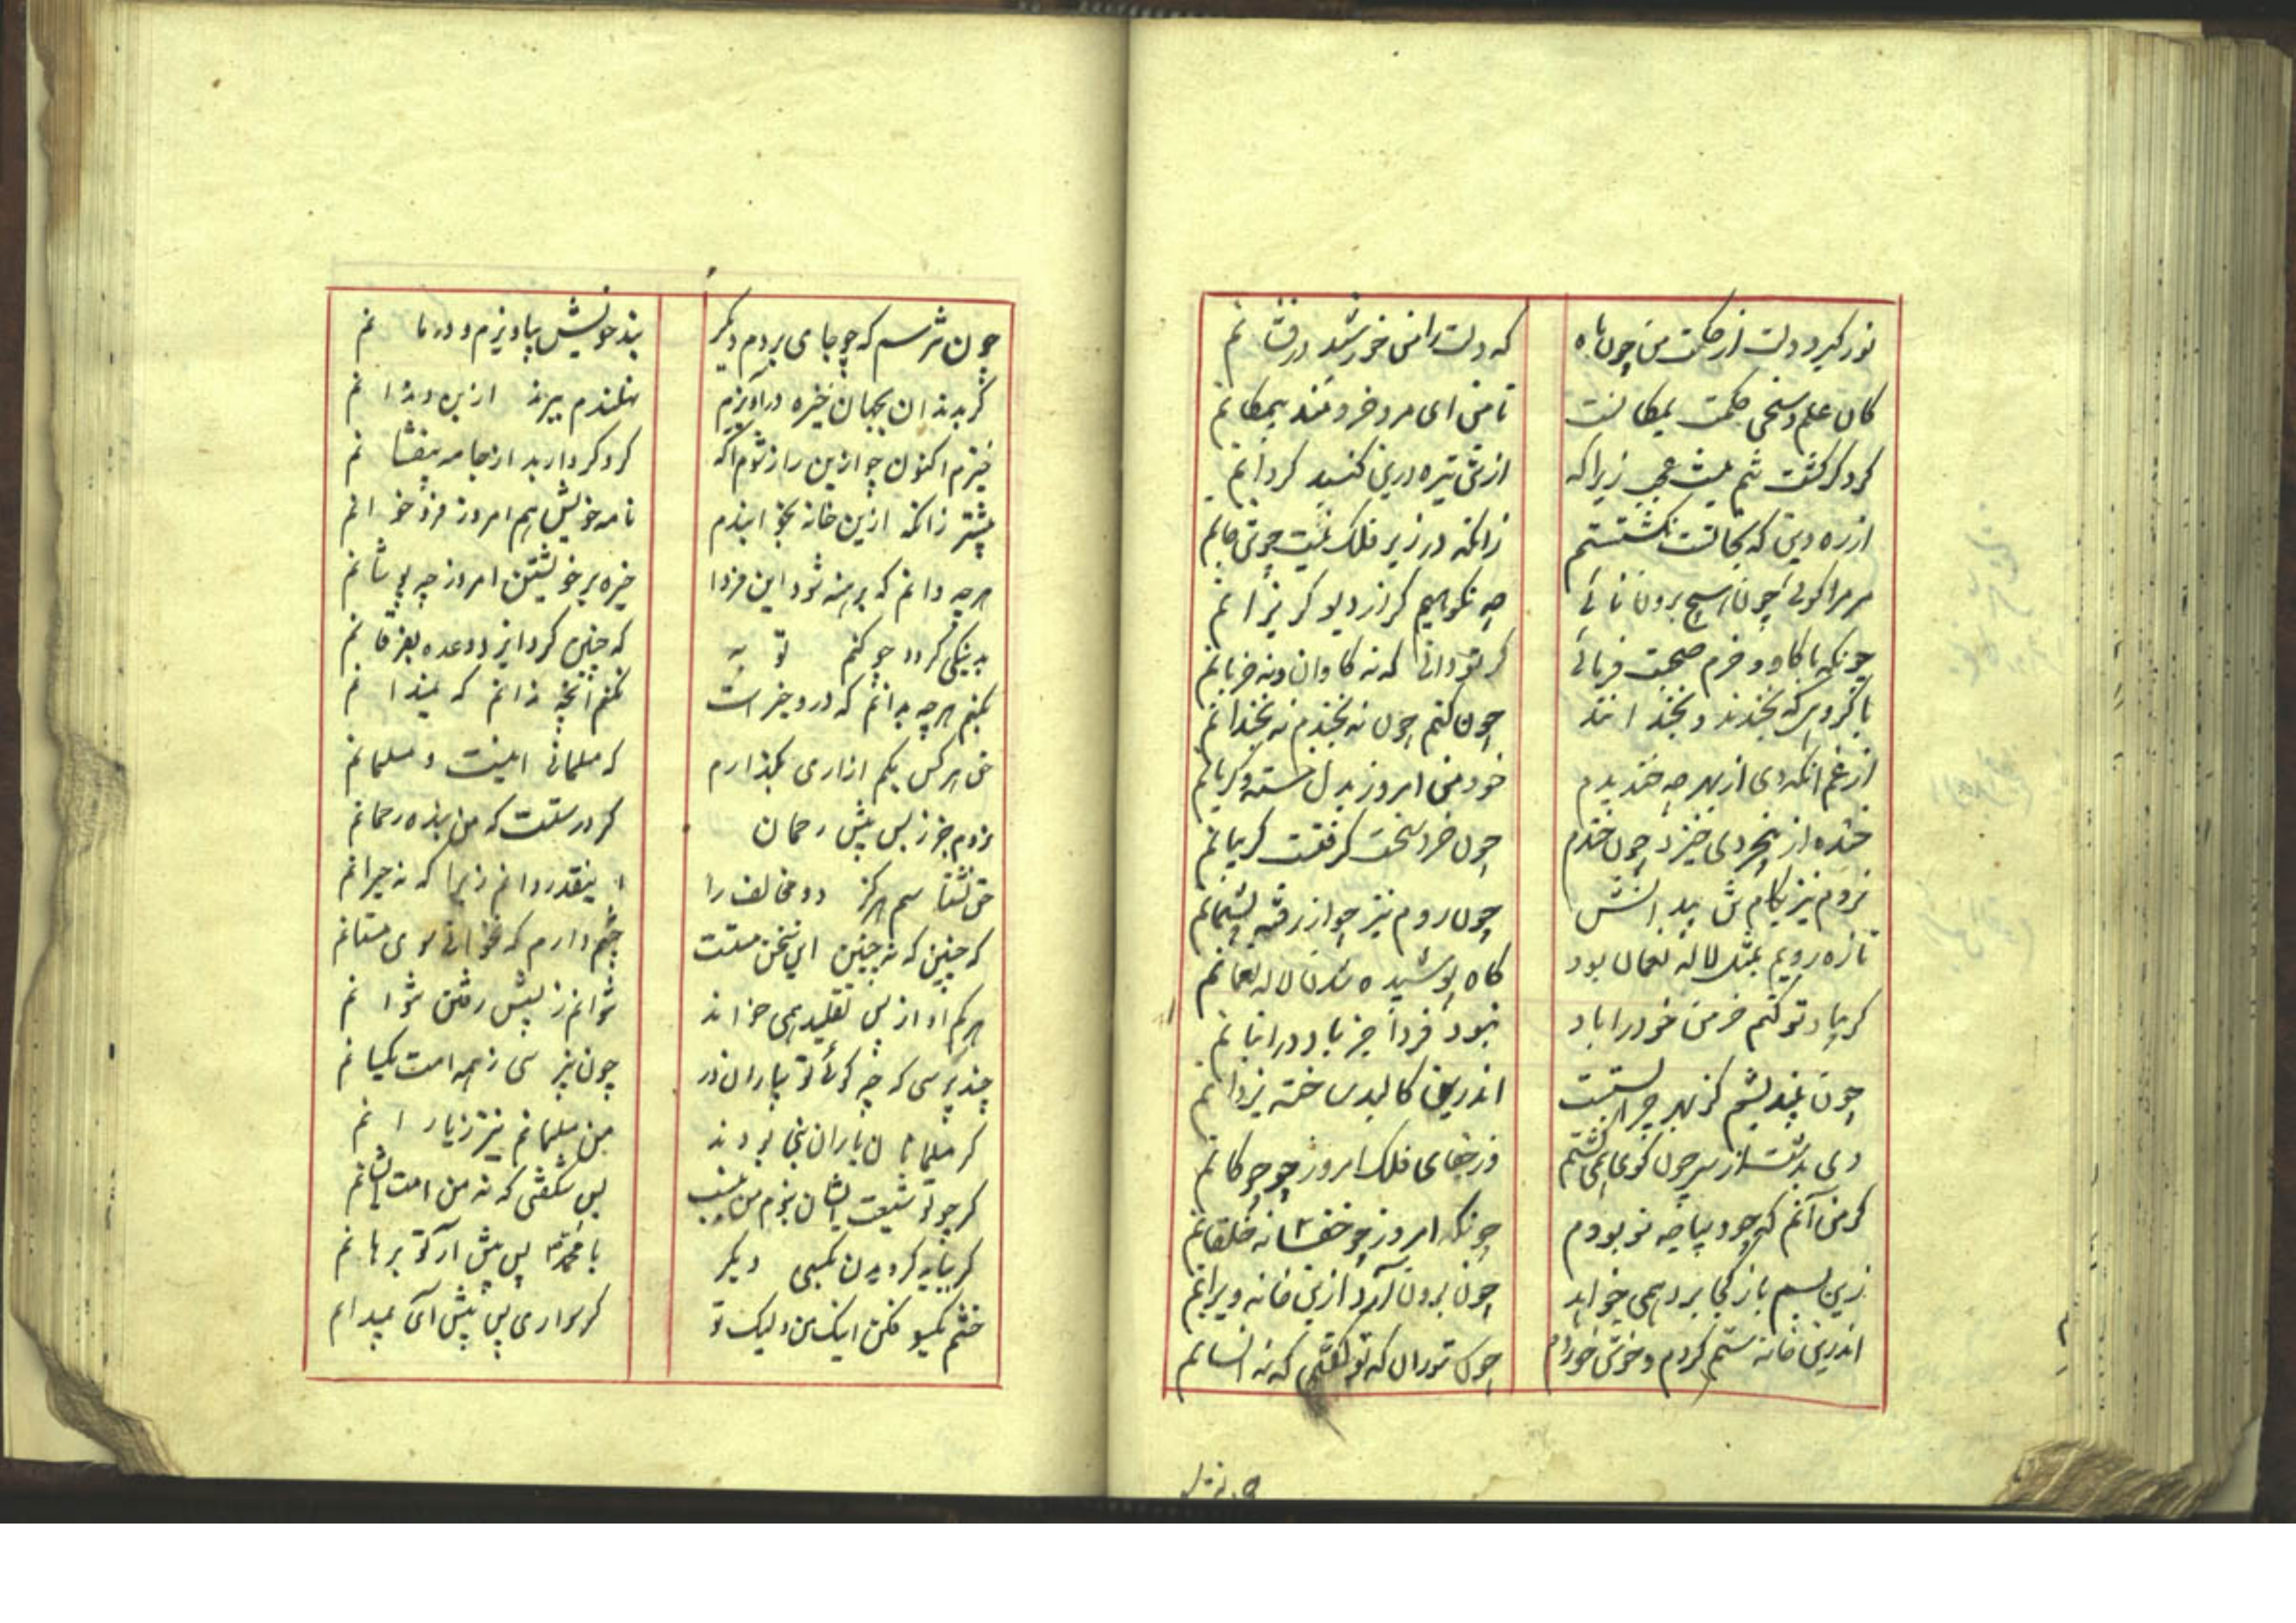 نور گیرد دلت از حکمت من چون ماه که دلت را من خورشید درفشانم
کان علم و سخن حکمت یمکانست تا من ای مرد خردمند بیمکانم
گرد گر گشت تنم نیست عجب زیرا که از تن تیره درین گنبد گردانم
از ره دین که بجانست نگشتستم زانکه در زیر فلک نیست چو تن جانم
مر مرا گوئی چون هیچ برون نائی چه نکوهیم گر از دیو گریزانم
چونکه با گاو و خرم صحبت فرمائی گر تو دانی که نه گاوان و نه خربانم
با گروهی که بخندند و بخندانند چون کنم چون نه بخندم نه بخندانم
از غم آنکه دی از بهر چه خندیدم خود من امروز بدل خسته و گریانم
خنده از بیخردی خیزد چون خندم چون خرد سخت گرفتست گریبانم
نروم نیز بکام تن بیدانش چون روم نیز چو از رفته پشیمانم
تازه رویم بمثل لاله نعمان بود کاه پوشیده شد آن لاله نعمانم
گر بیاد تو کنم خرمن خود را باد نبود فردا جز باد در انبانم
چون نیندیشم کز بهر چرا بستست اندرین کالبد ساخته یزدانم
دی بدشت از سر چون گوی همی گشتم وز جفای فلک امروز چو چوگانم
گر من آنم که چو دیباچه نو بودم چونکه امروز چو خفسانه خلقانم
زین بسم باز کجا برد همی خواهد چون برون آرد ازین خانه ویرانم
اندرین خانه ستم کردم و خوش خوردم چون ستوران که تو گفتی که نه انسانم
چون نترسم که چو جای بروم دیگر بند خویش بیاویزم و درمانم
گر بدندان بجهان خیره درآویزم نهلندم ببرند ازین دندانم
خیزم اکنون چو ازین راز شوم آگه گرد کردار بد از جامه بیفشانم
پیشتر زانکه ازین خانه بخوانندم نامه خویش هم امروز فرو خوانم
هر چه دانم که برهنه شود این فردا خیره بر خویشتن امروز چه پوشانم
بد به نیکی گردد چو کنم توبه که چنین کرد ایزد وعده بفرقانم
بکنم هر چه بدانم که درو خیر است نکنم آنچه ندانم که نمیدانم
حق هر کس بکم ازاری بگذارم که مسلمانی اینست و مسلمانم
نروم جز ز پس پیش رحمان گر درستست که من بنده رحمانم
حق نشناسم هرگز دو مخالف را اینقدر دانم زیرا که نه حیرانم
که چنین که نه چنین این سخن مستست چشم دارم که نخوانی سوی مستانم
هر کم او از پی تقلید همی خواند نتوانم ز پیش رفتن نتوانم
چند پرسی که چه گوئی تو بیاران در چون نپرسی ز همه امت یکسانم
گر مسلمانان یاران نبی بودند من مسلمانم نیز ز یارانم
گر چو تو شیعت ایشان نبوم من نیست بس شگفتی که نه من امت ایشانم
گر بباید گرویدن بکسی دیگر با محمد پس پیش آر تو برهانم
خشم یکسو فکن اینک من و اینک تو گر سواری پس پیش آی بمیدانم